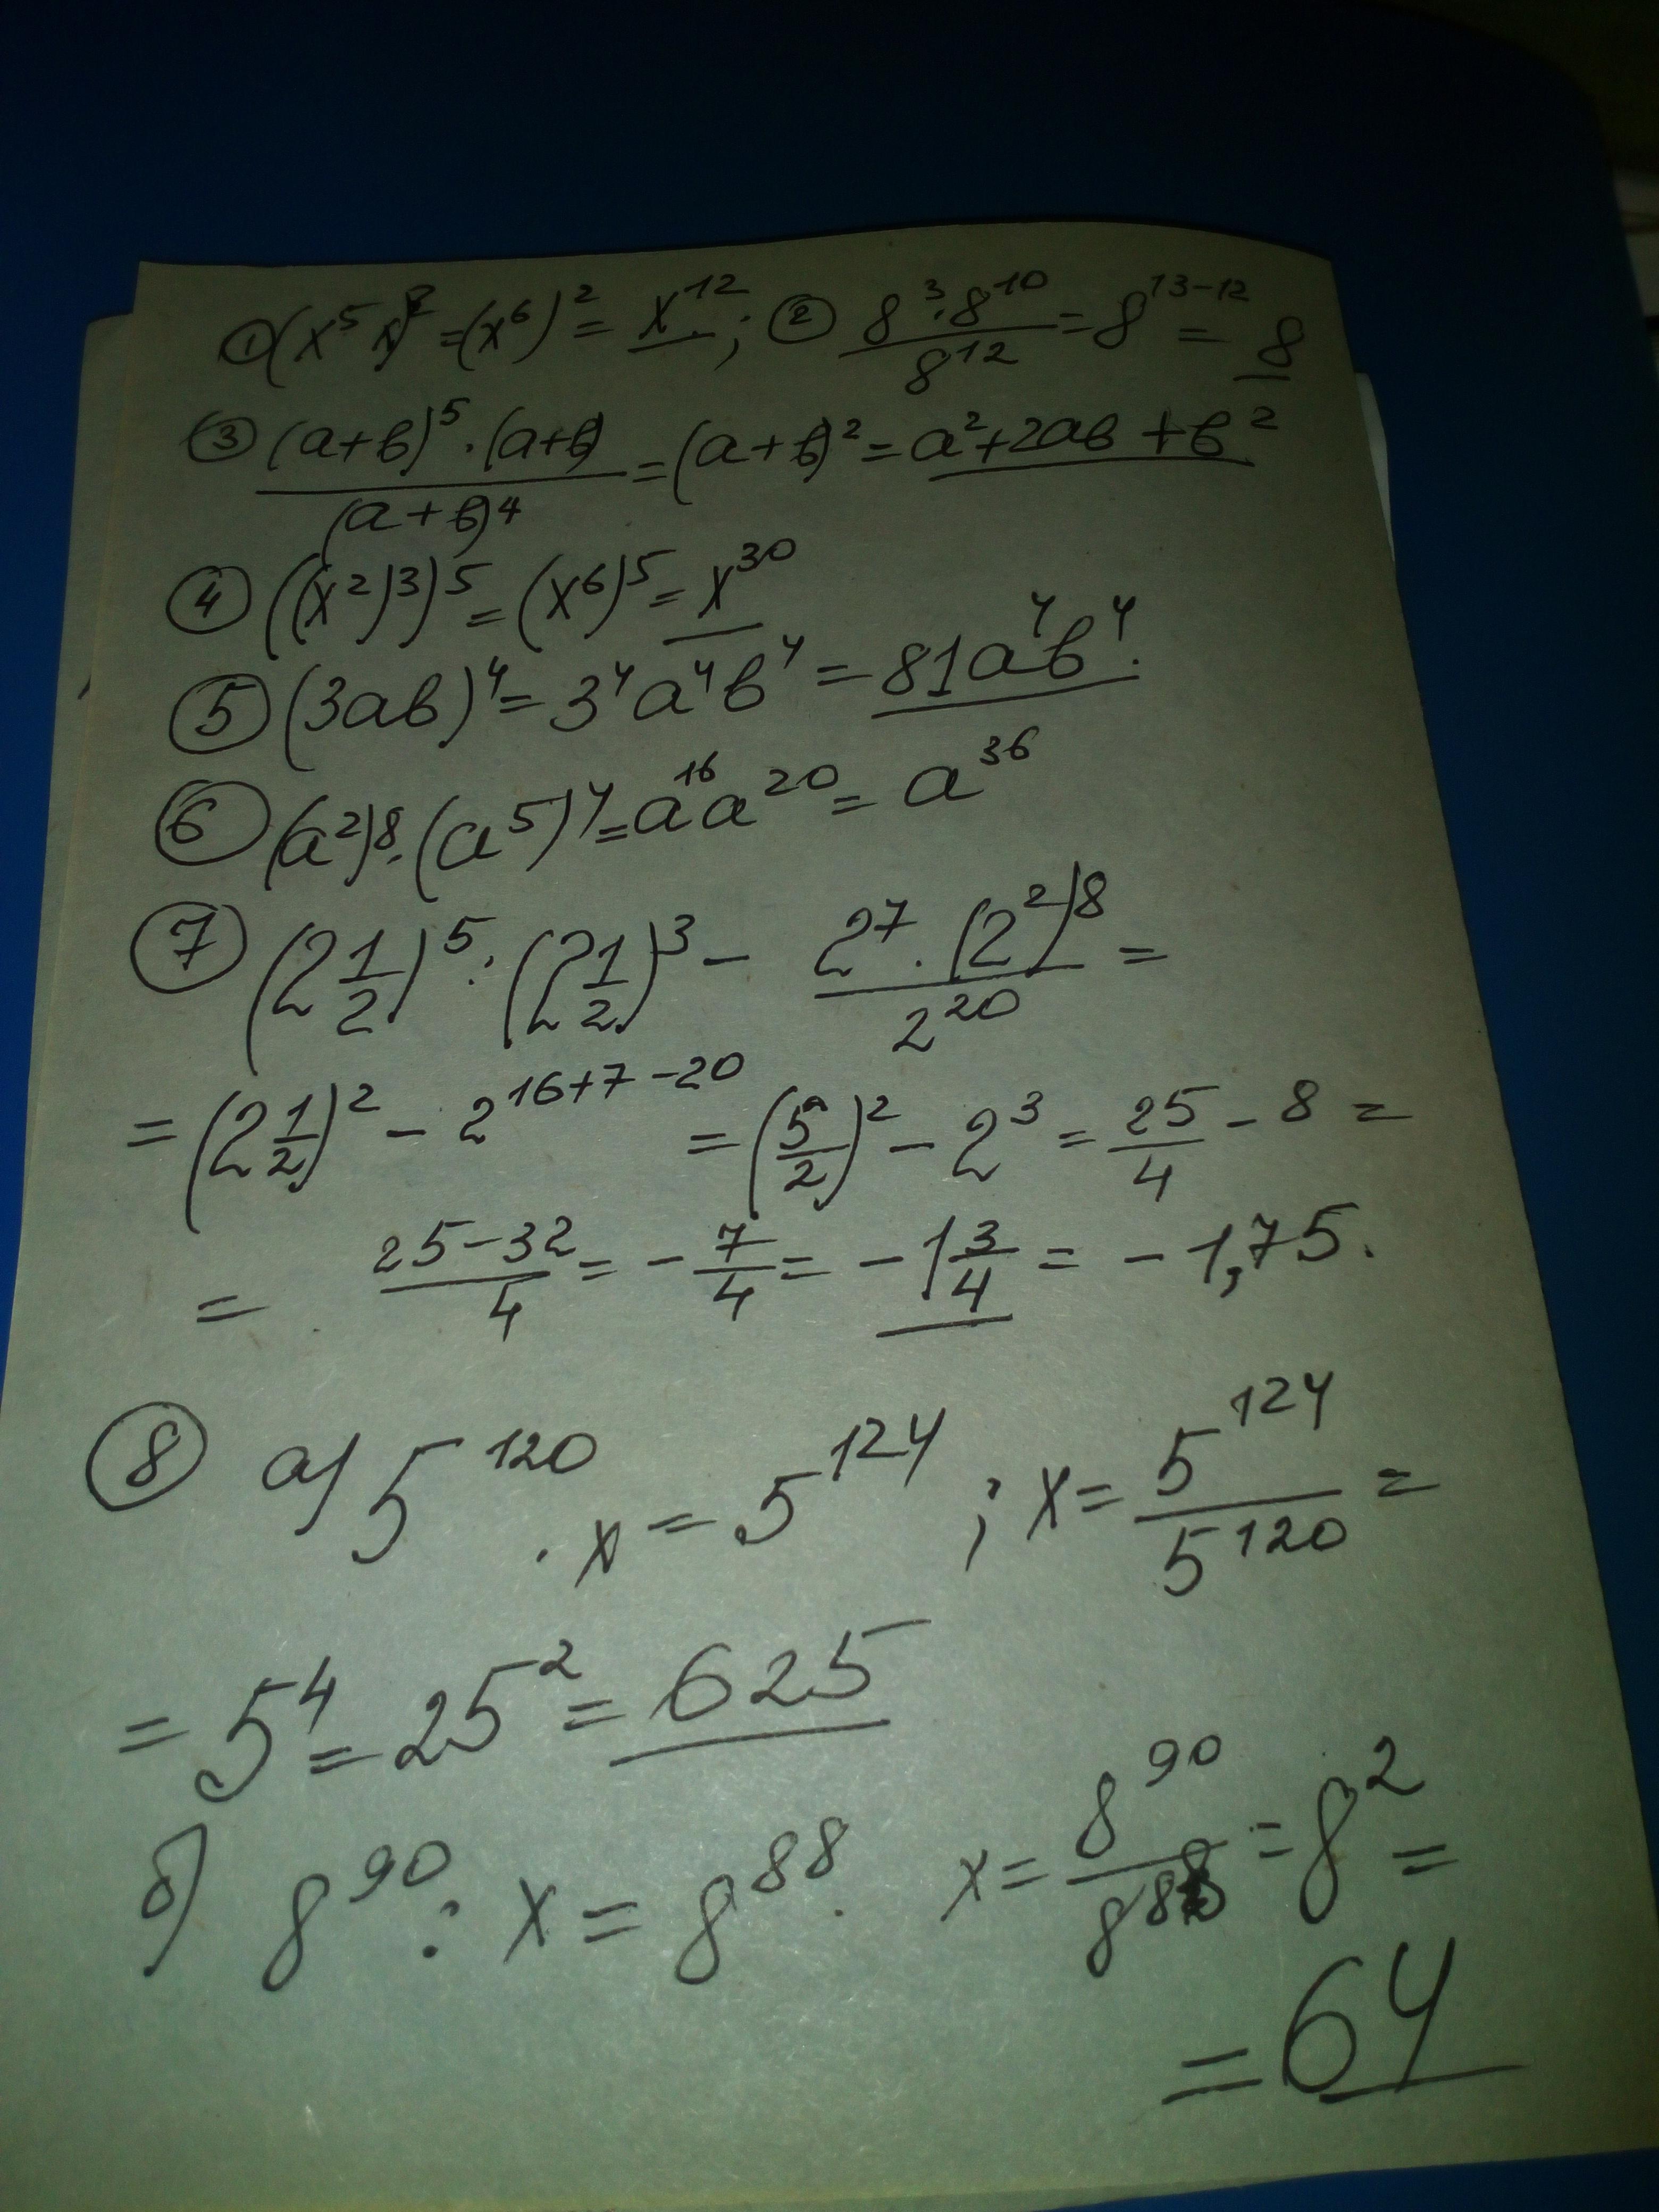 ① (x⁵x)² = (x⁶)² = x¹²; ② (8³·8¹⁰)/8¹² = 8¹³⁻¹² = 8
③ ((a+b)⁵·(a+b))/(a+b)⁴ = (a+b)² = a²+2ab+b²
④ ((x²)³)⁵ = (x⁶)⁵ = x³⁰
⑤ (3ab)⁴ = 3⁴a⁴b⁴ = 81a⁴b⁴.
⑥ (a²)⁸·(a⁵)⁴ = a¹⁶a²⁰ = a³⁶
⑦ (2 1/2)⁵ : (2 1/2)³ − (2⁷·(2²)⁸)/2²⁰ =
= (2 1/2)² − 2¹⁶⁺⁷⁻²⁰ = (5/2)² − 2³ = 25/4 − 8 =
= (25−32)/4 = −7/4 = −1 3/4 = −1,75.
⑧ а) 5¹²⁰·x = 5¹²⁴; x = 5¹²⁴/5¹²⁰ =
= 5⁴ = 25² = 625
б) 8⁹⁰ : x = 8⁸⁸. x = 8⁹⁰/8⁸⁸ = 8² =
= 64